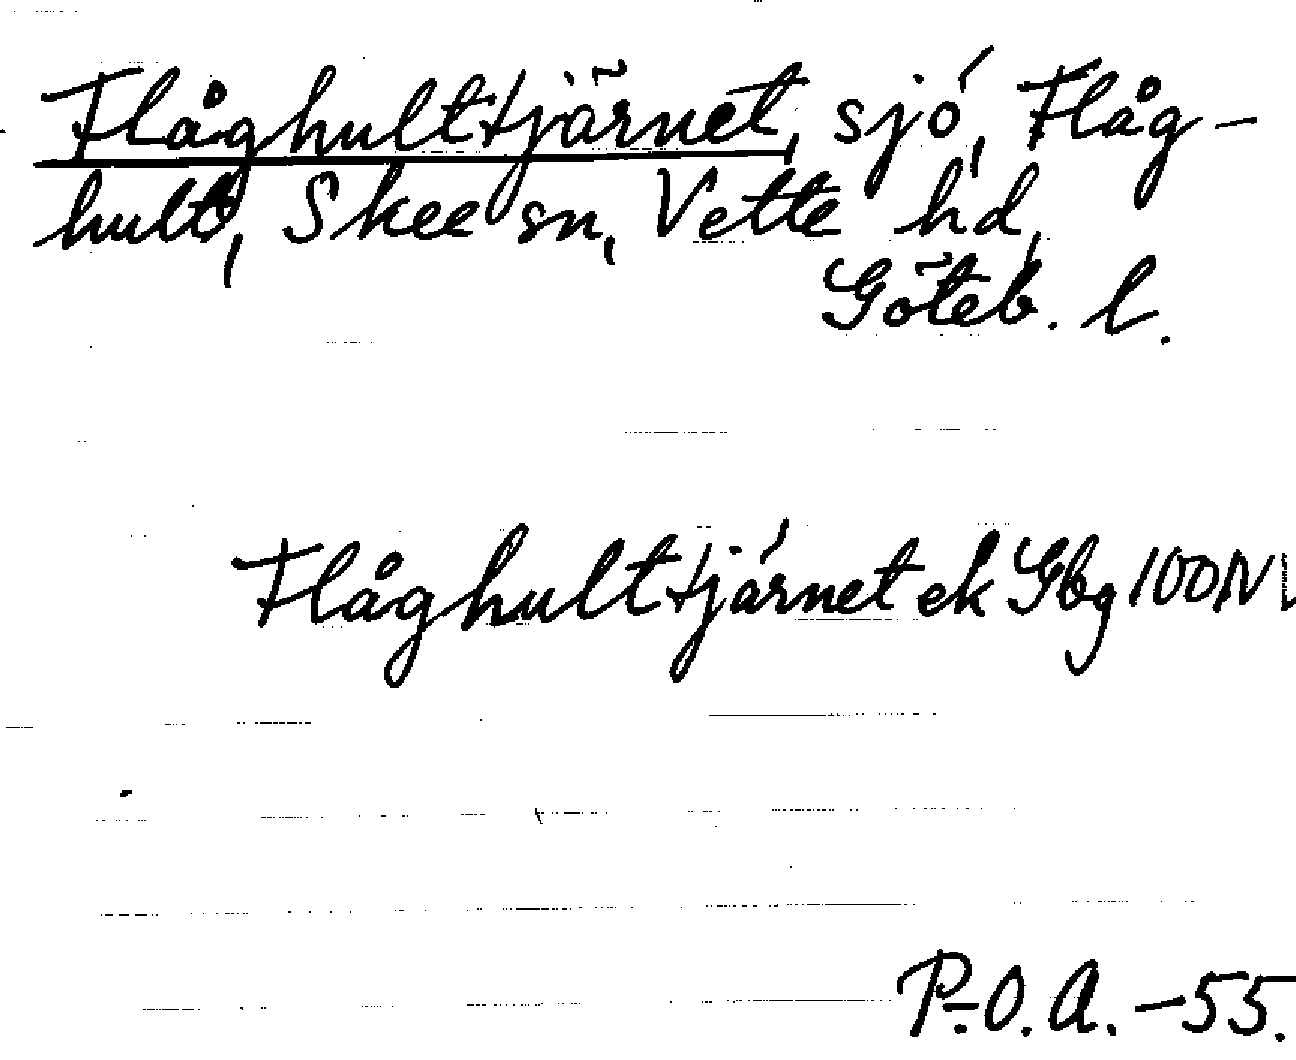 Flåghulttjärnet, sjö, Flåg-
hult, Skee sn, Vette hd,
Göteb. l.
Flåghulttjärnet ek Gbg 100NV
P.-O. A. -55.